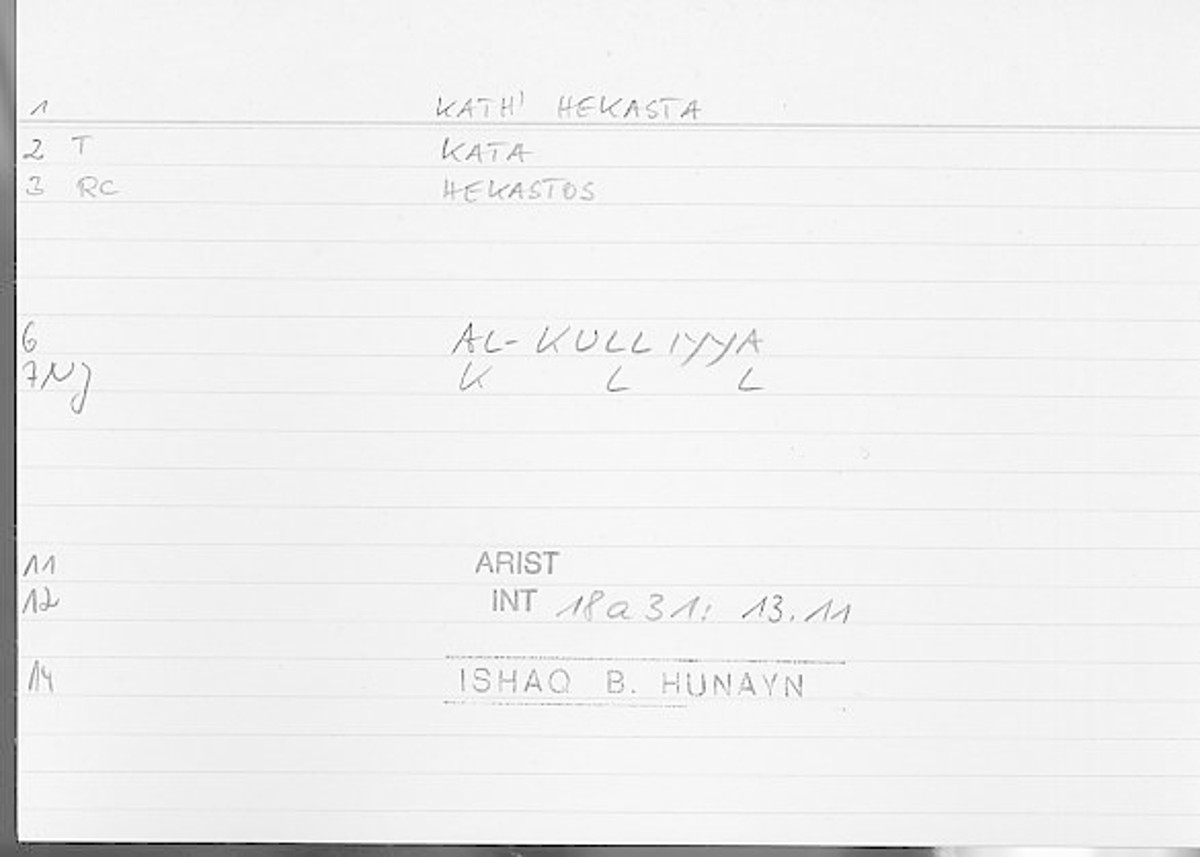 1 KATH' HEKASTA
2 T KATA
3 RC HEKASTOS
6 AL-KULLIYYA
7 Nj K L L
11 ARIST
12 INT 18a31: 13.11
14 ISHAQ B. HUNAYN